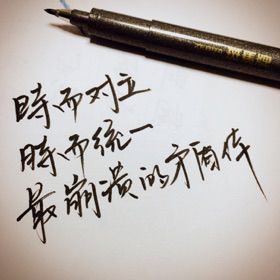 時而对立
時而统一
最崩溃的矛盾体